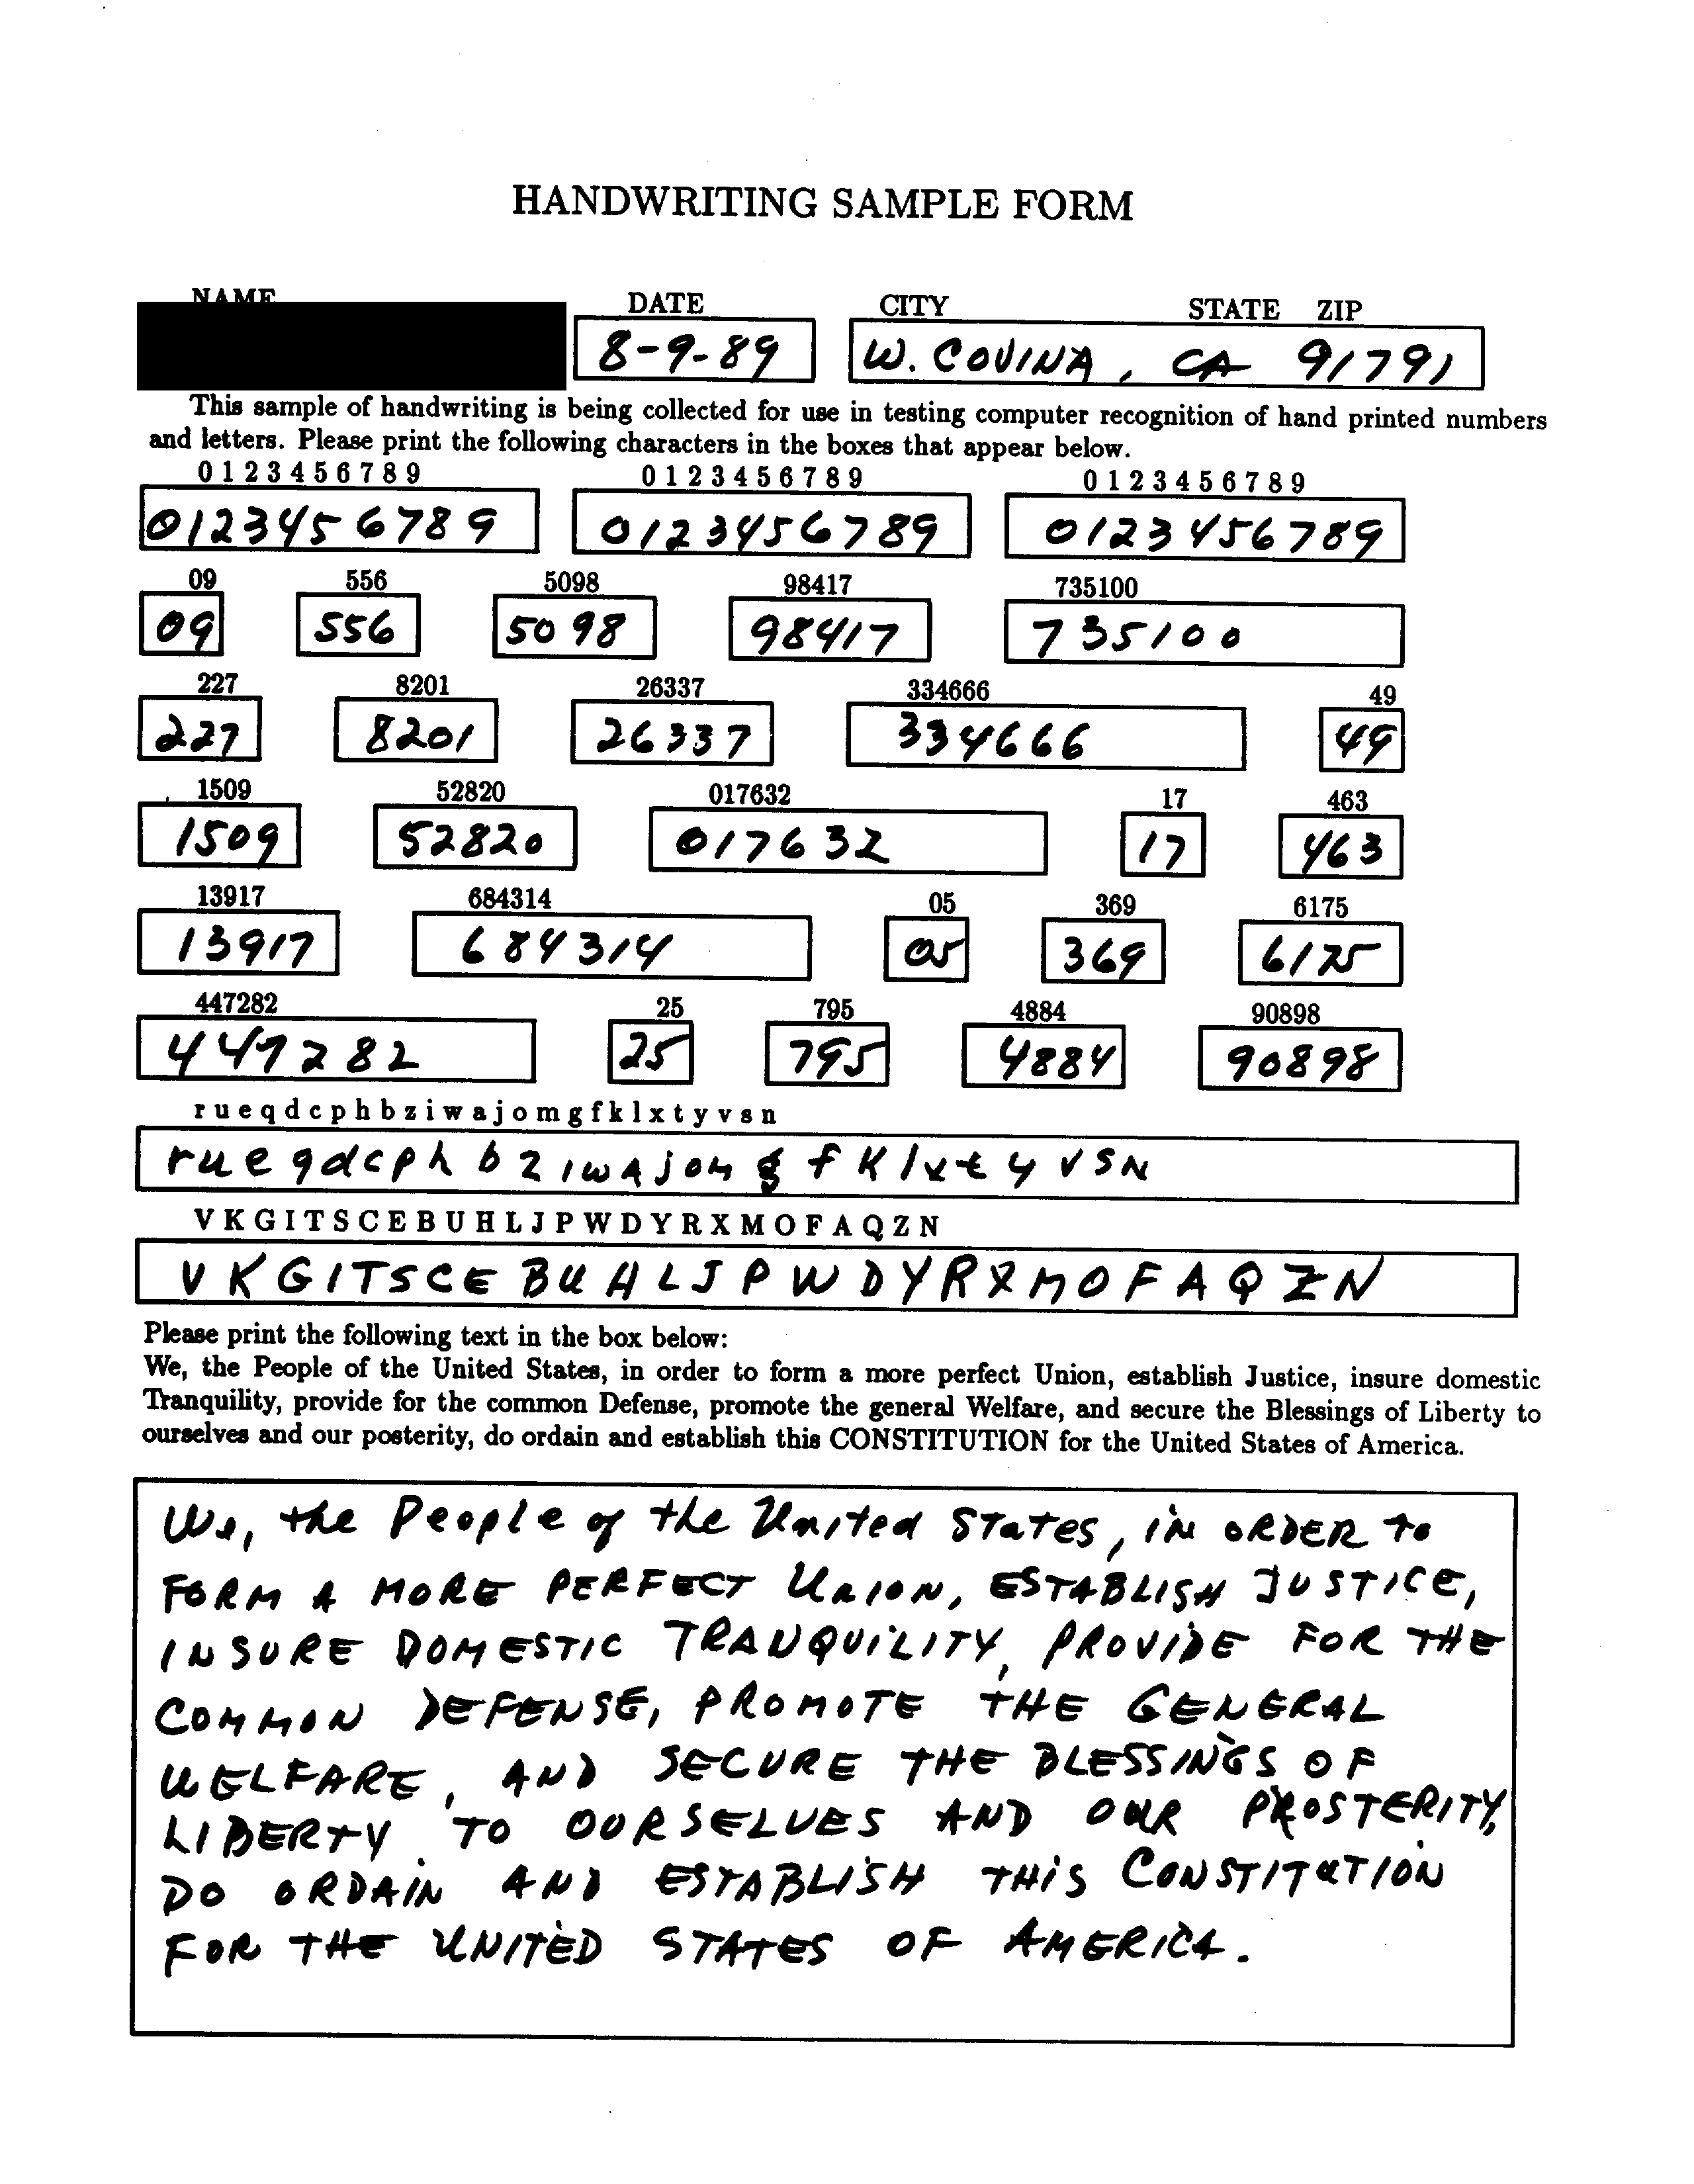 HANDWRITING SAMPLE FORM
NAME DATE CITY STATE ZIP
8-9-89 W. COVINA, CA 91791
This sample of handwriting is being collected for use in testing computer recognition of hand printed numbers
and letters. Please print the following characters in the boxes that appear below.
0 1 2 3 4 5 6 7 8 9 0 1 2 3 4 5 6 7 8 9 0 1 2 3 4 5 6 7 8 9
0123456789 0123456789 0123456789
09 556 5098 98417 735100
09 556 5098 98417 735100
227 8201 26337 334666 49
227 8201 26337 334666 49
1509 52820 017632 17 463
1509 52820 017632 17 463
13917 684314 05 369 6175
13917 684314 05 369 6175
447282 25 795 4884 90898
447282 25 795 4884 90898
r u e q d c p h b z i w a j o m g f k l x t y v s n
r u e q d c p h b z i w A j o m g f K l x t y v s N
V K G I T S C E B U H L J P W D Y R X M O F A Q Z N
V K G I T S C E B U H L J P W D Y R X M O F A Q Z N
Please print the following text in the box below:
We, the People of the United States, in order to form a more perfect Union, establish Justice, insure domestic
Tranquility, provide for the common Defense, promote the general Welfare, and secure the Blessings of Liberty to
ourselves and our posterity, do ordain and establish this CONSTITUTION for the United States of America.
We, the People of the United STaTes, iN ORDER To
FORM A MORE PERFECT UNION, ESTABLISH JUSTICE,
INSURE DOMESTIC TRANQUILITY, PROVIDE FOR THE
COMMON DEFENSE, PROMOTE THE GENERAL
WELFARE, AND SECURE THE BLESSINGS OF
LIBERTY TO OURSELVES AND OUR PROSTERITY,
DO ORDAIN AND ESTABLISH THIS CONSTITUTION
FOR THE UNITED STATES OF AMERICA.